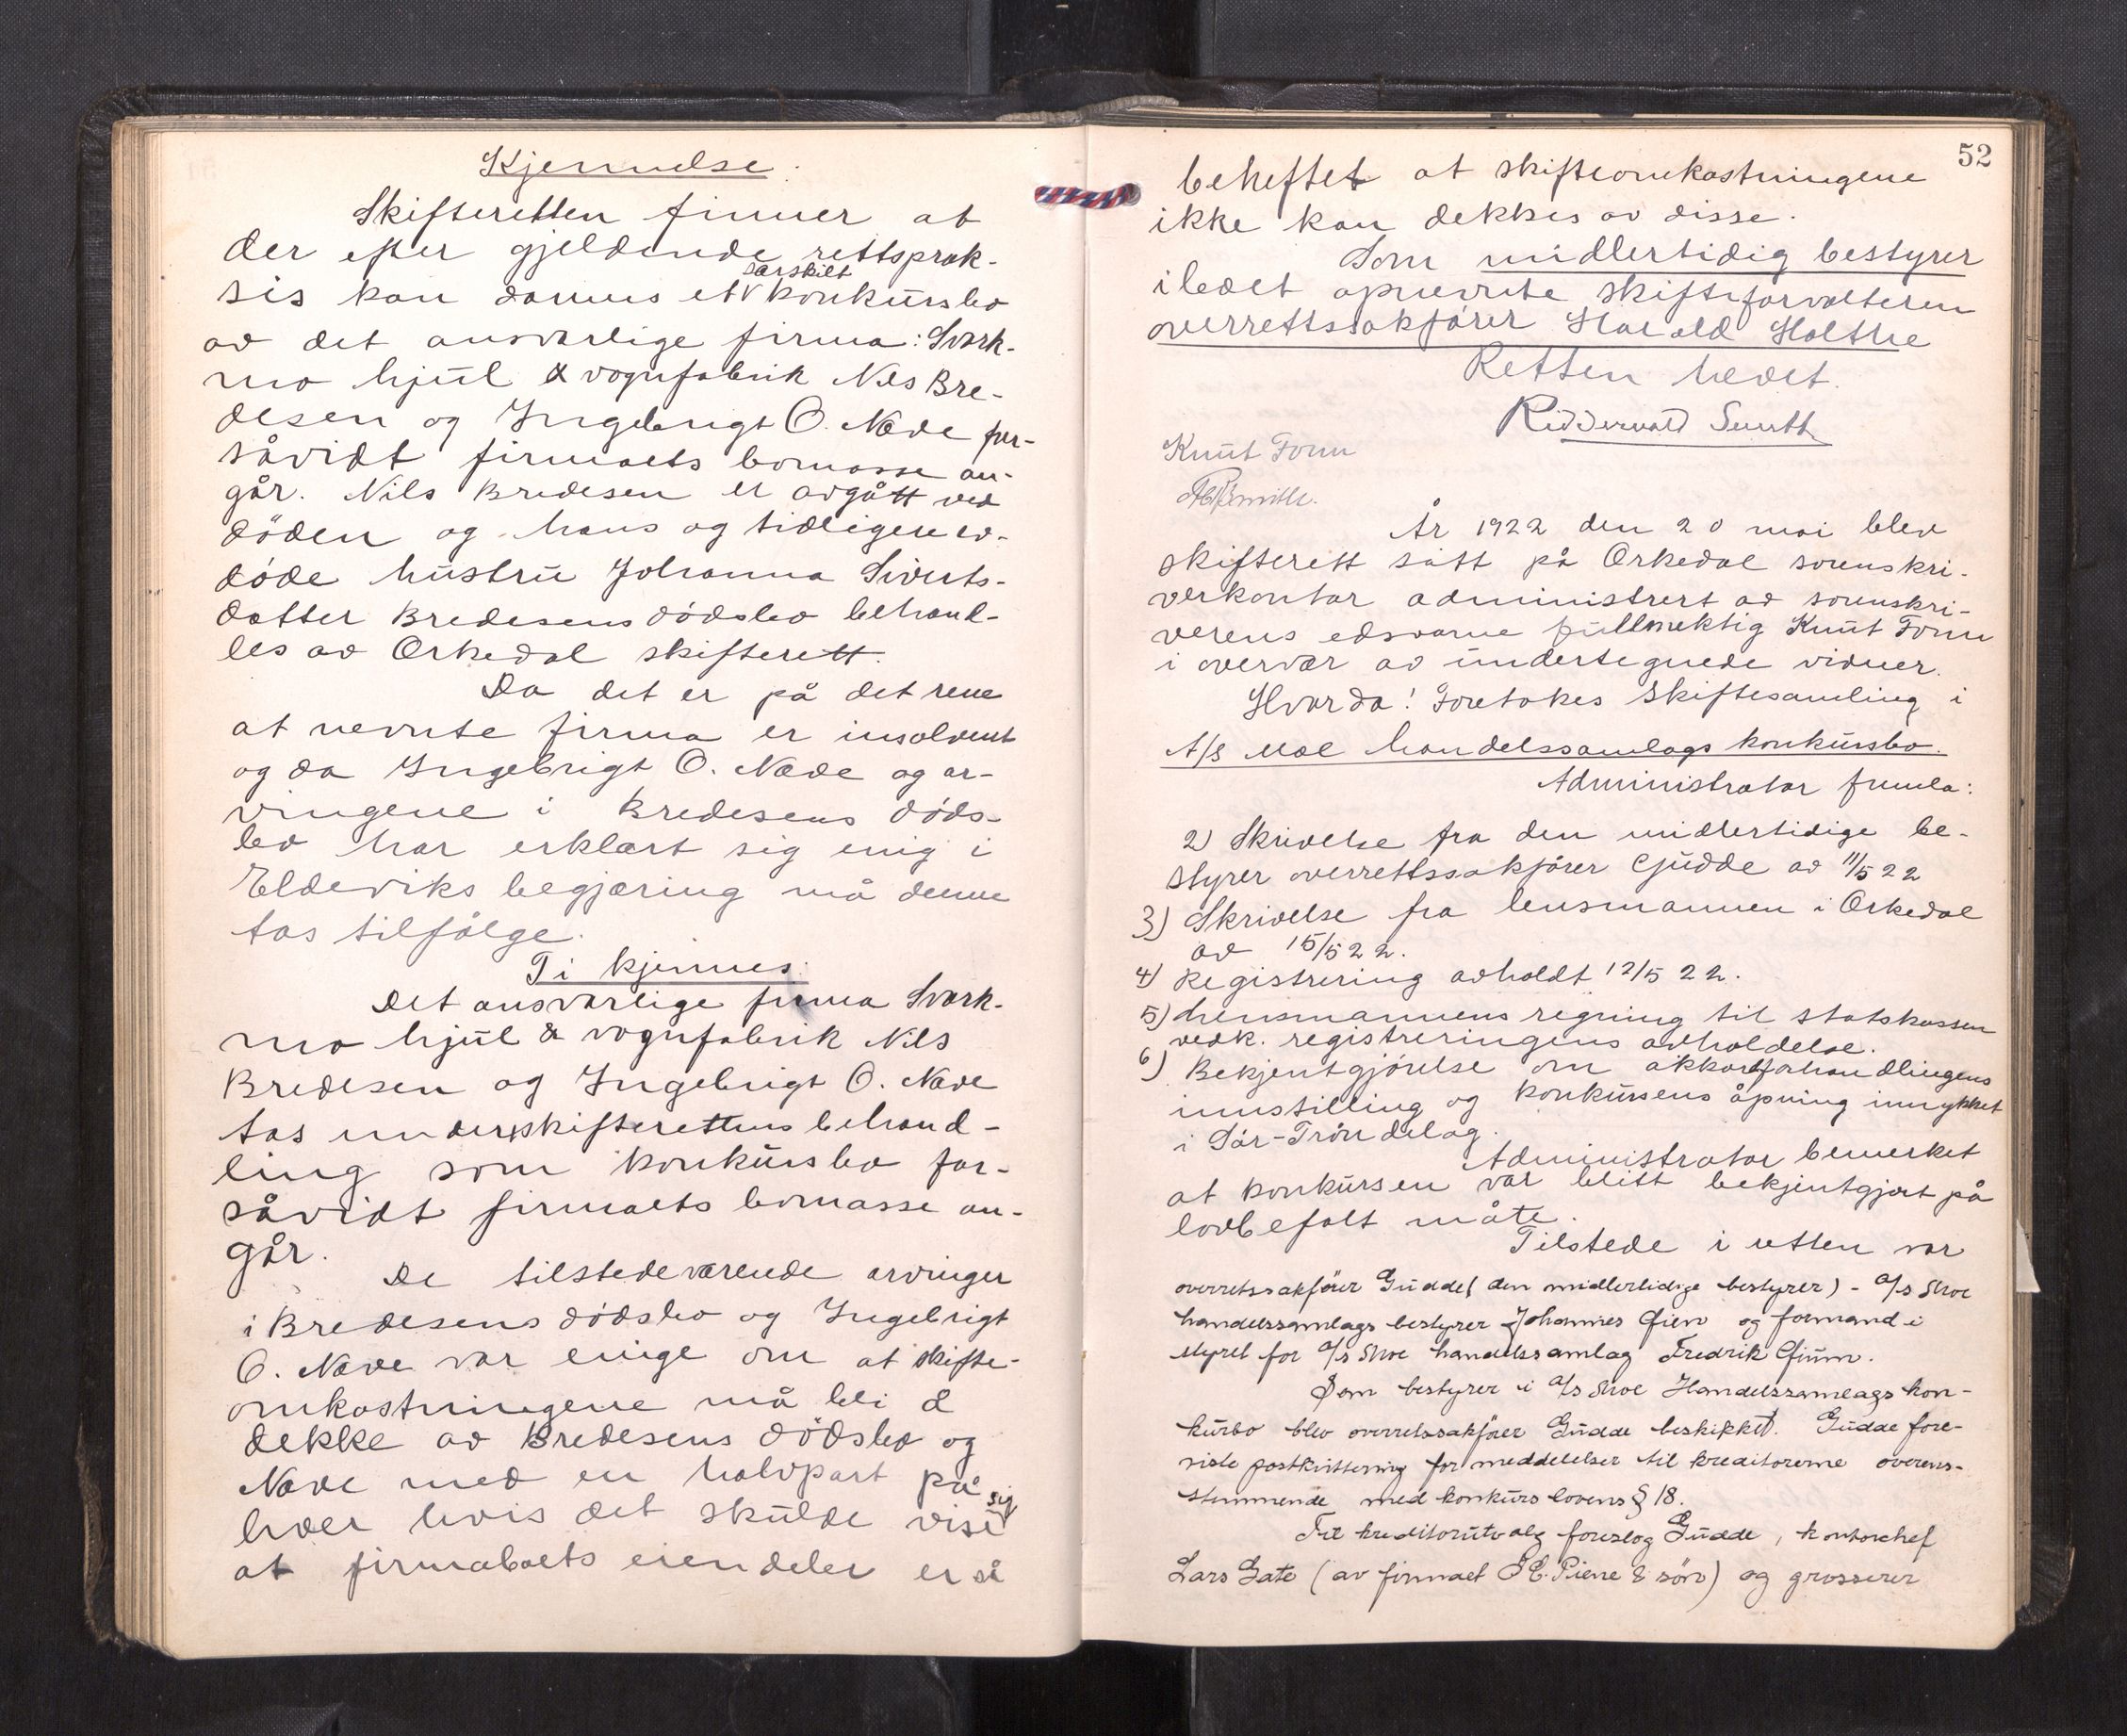 Kjennelse.
Skifteretten finner at
der efter gjeldende rettsprak-
særskilt
sis kan dannes et konkursbo
av det ansvarlige firma: Svork-
mo hjul & vognfabrik Nils Bre-
desen og Ingebrigt O. Næve for-
såvidt firmaets bomasse an-
går. Nils Bredesen er avgått ved
döden og hans og tidligere av-
döde hustru Johanna Siverts-
datter Bredesens dödsbo behand-
les av Orkedal skifterett.
Da det er på det rene
at nevnte firma er insolvent
og da Ingebrigt O. Næve og ar-
vingene i Bredesens döds-
bo har erklært sig enig i
Eldeviks begjæring må denne
tas tilfölge.
Ti kjennes:
Det ansvarlige firma Svork-
mo hjul & vognfabrik Nils
Bredesen og Ingebrigt O. Næve
tas under skifterettens behand-
ling som konkursbo for-
såvidt firmaets bomasse an-
går.
De tilstedeværende arvinger
i Bredesens dödsbo og Ingebrigt
O. Næve var enige om at skifte-
omkostningene må bli å
dekke av Bredesens dödsbo og
Næve med en halvpart på
sig
hver hvis det skulde vise
at firmaboets eiendeler er så
52
beheftet at skifteomkostningene
ikke kan dekkes av disse.
Som midlertidig bestyrer
i boet opnevnte skifteforvalteren
overrettssakförer Harald Holthe
Retten hevet.
Riddervold Smith
Knut Tonn
År 1922 den 20 mai blev
skifterett satt på Orkedal sorenskri-
verkontor administrert av sorenskri-
verens edsvorne fullmektig Knut Tonn
i overvær av undertegnede vidner.
Hvorda! Foretokes skiftesamling i
A/S Moe handelssamlags konkursbo.
Administrator fremla:
2) Skrivelse fra den midlertidige be-
styrer overrettssakförer Gudde av 11/5 22
3) Skrivelse fra lensmannen i Orkedal
av 15/5 22.
4) Registrering avholdt 12/5 22.
5) Lensmannens regning til statskassen
vedk. registreringens avholdelse.
6) Bekjentgjörelse om akkordforhandlingens
innstilling og konkursens åpning innrykket
i Sör-Tröndelag.
Administrator bemerket
at konkursen var blitt bekjentgjort på
lovbefalt måte.
Tilstede i retten var
overretssakförer Gudde (den midlertidige bestyrer) - a/s Moe
handelssamlags bestyrer Johannes Gjen og formand i
styret for a/s Moe handelssamlag Fredrik Gjum.
Som bestyrer i a/s Moe Handelssamlags kon-
kursbo blev overretssakförer Gudde beskikket. Gudde fore-
viste postkvittering for meddelelser til kreditorerne overens-
stemmende med konkurslovens § 18.
Til kreditorutvalg foreslog Gudde, kontorchef
Lars Gate (av firmaet P. E. Piene & sön) og grosserer